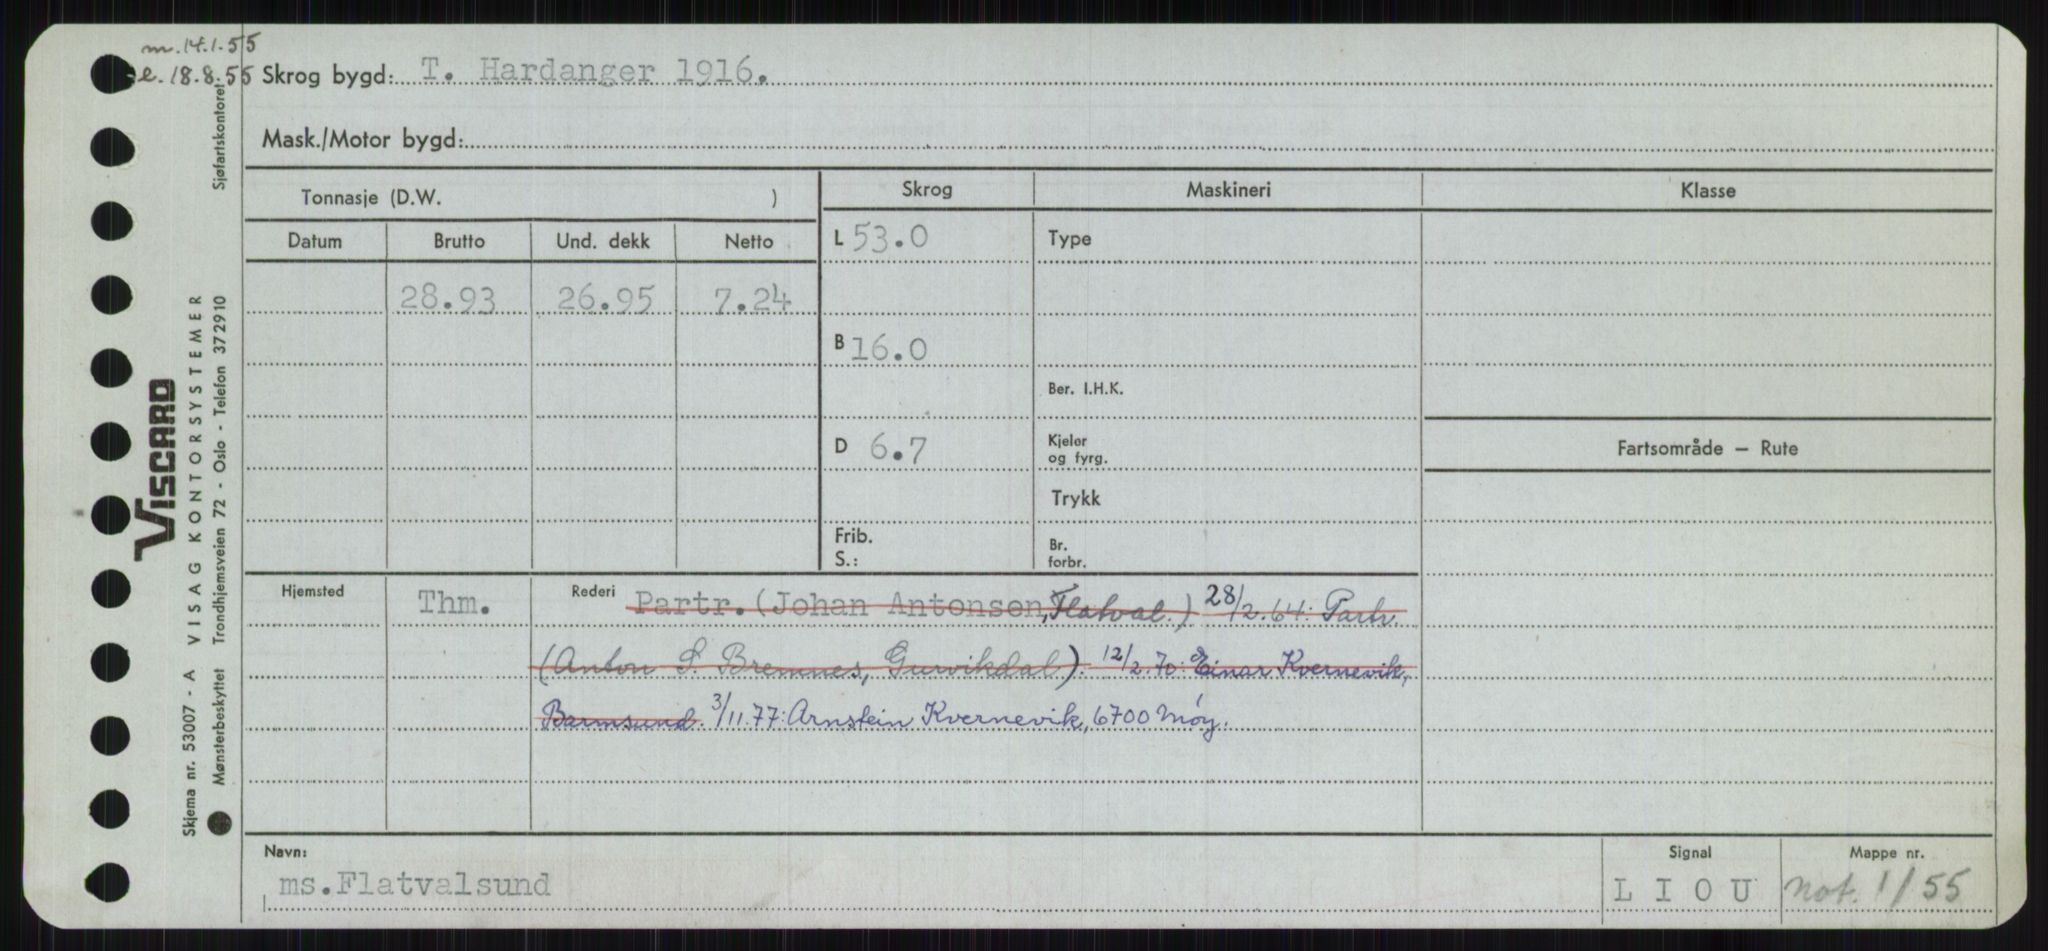 m. 14.1.55
e. 18.8.55
Skrog bygd: T. Hardanger 1916.
Mask./Motor bygd:
Tonnasje (D.W. )
Skrog
Maskineri
Klasse
Datum
Brutto
Und. dekk
Netto
L 53.0
Type
28.93
26.95
7.24
B 16.0
Ber. I.H.K.
D 6.7
Kjeler
og fyrg.
Fartsområde — Rute
Trykk
Frib.
S.:
Br.
forbr.
Hjemsted
Thm.
Rederi
Partr. (Johan Antonsen, Flatval.) 28/2.64: Partr.
(Anton S. Bremnes, Gurvikdal). 12/2.70: Einar Kvernevik,
Barmsund. 3/11.77: Arnstein Kvernevik, 6700 Måy.
Navn:
ms. Flatvalsund
Signal
L I O U
Mappe nr.
not. 1/55
VISCARD
Skjema nr. 53007 - A VISAG KONTORSYSTEMER
Mønsterbeskyttet Trondhjemsveien 72 - Oslo - Telefon 372910 Sjøfartskontoret